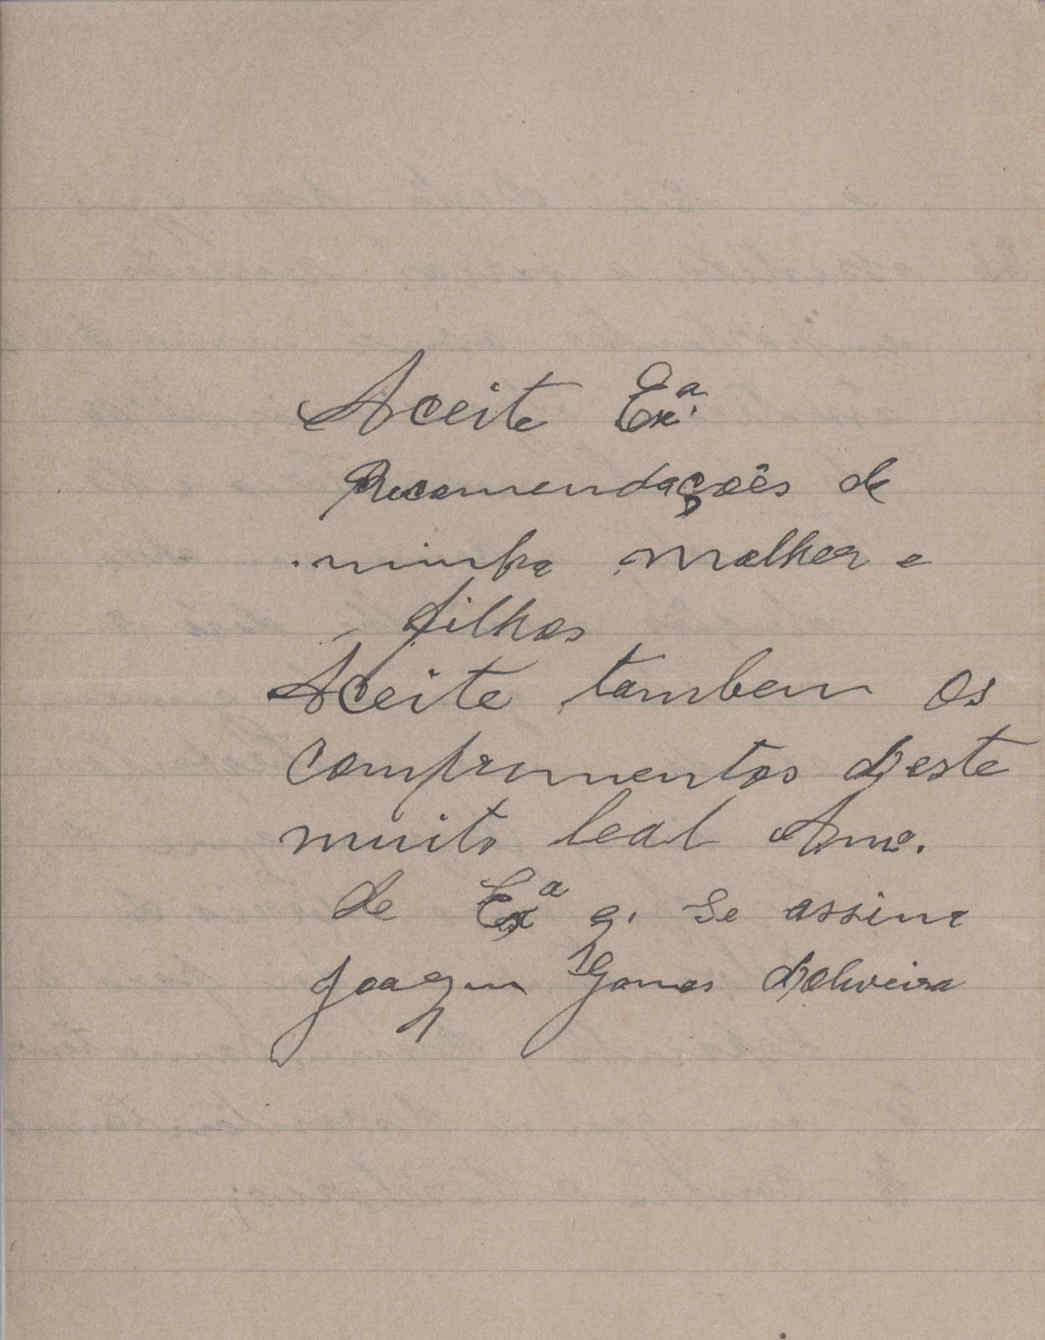 Aceite Exª.
Recomendações de
minha molher e
filhos
Aceite tambem os
comprimentos deste
muito leal Amº.
de Exª q. se assina
Joaqim Gomes d'Oliveira